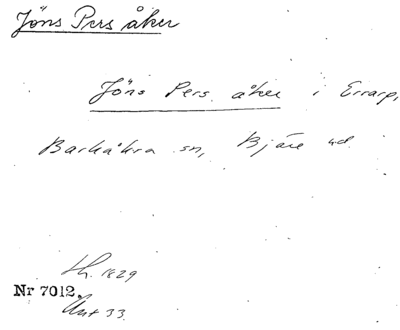 Jöns Pers åker
Jöns Pers åker i Errarp,
Barkåkra sn, Bjäre hd.
Lh. 1829
Nr 7012.
Ant 33